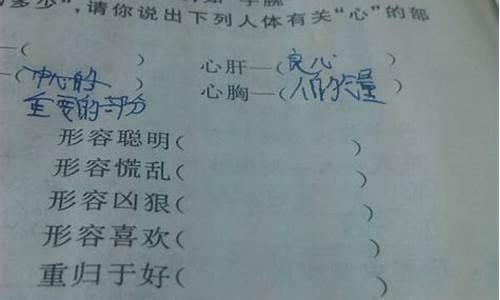 多少",请你说出下列人体有关"心"的部
—( ) 心肝—(良心)
—(中心的重要的部分) 心胸—(人的气量)
形容聪明( )
形容慌乱( )
形容凶狠( )
形容喜欢( )
重归于好( )